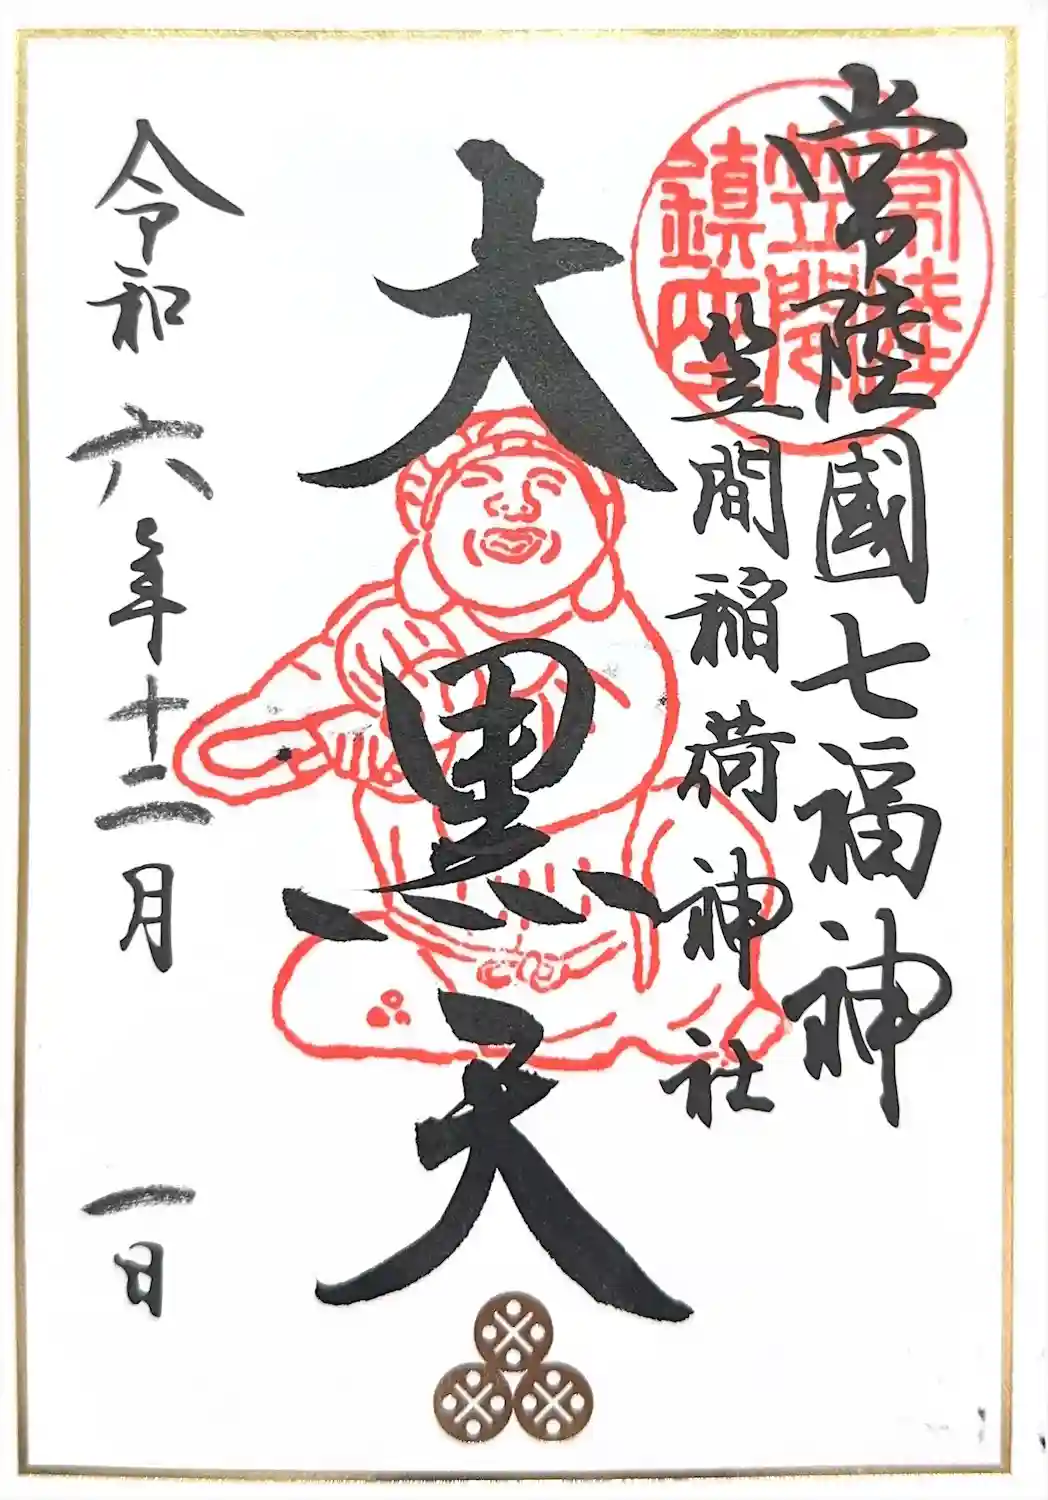 常陸國七福神
笠間稲荷神社
常陸
笠間
鎮座
大黒天
令和六年十二月一日